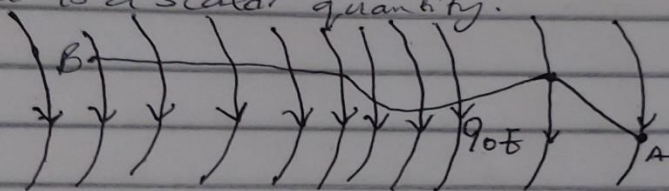 is a scalar quantity.
B
q₀E
A